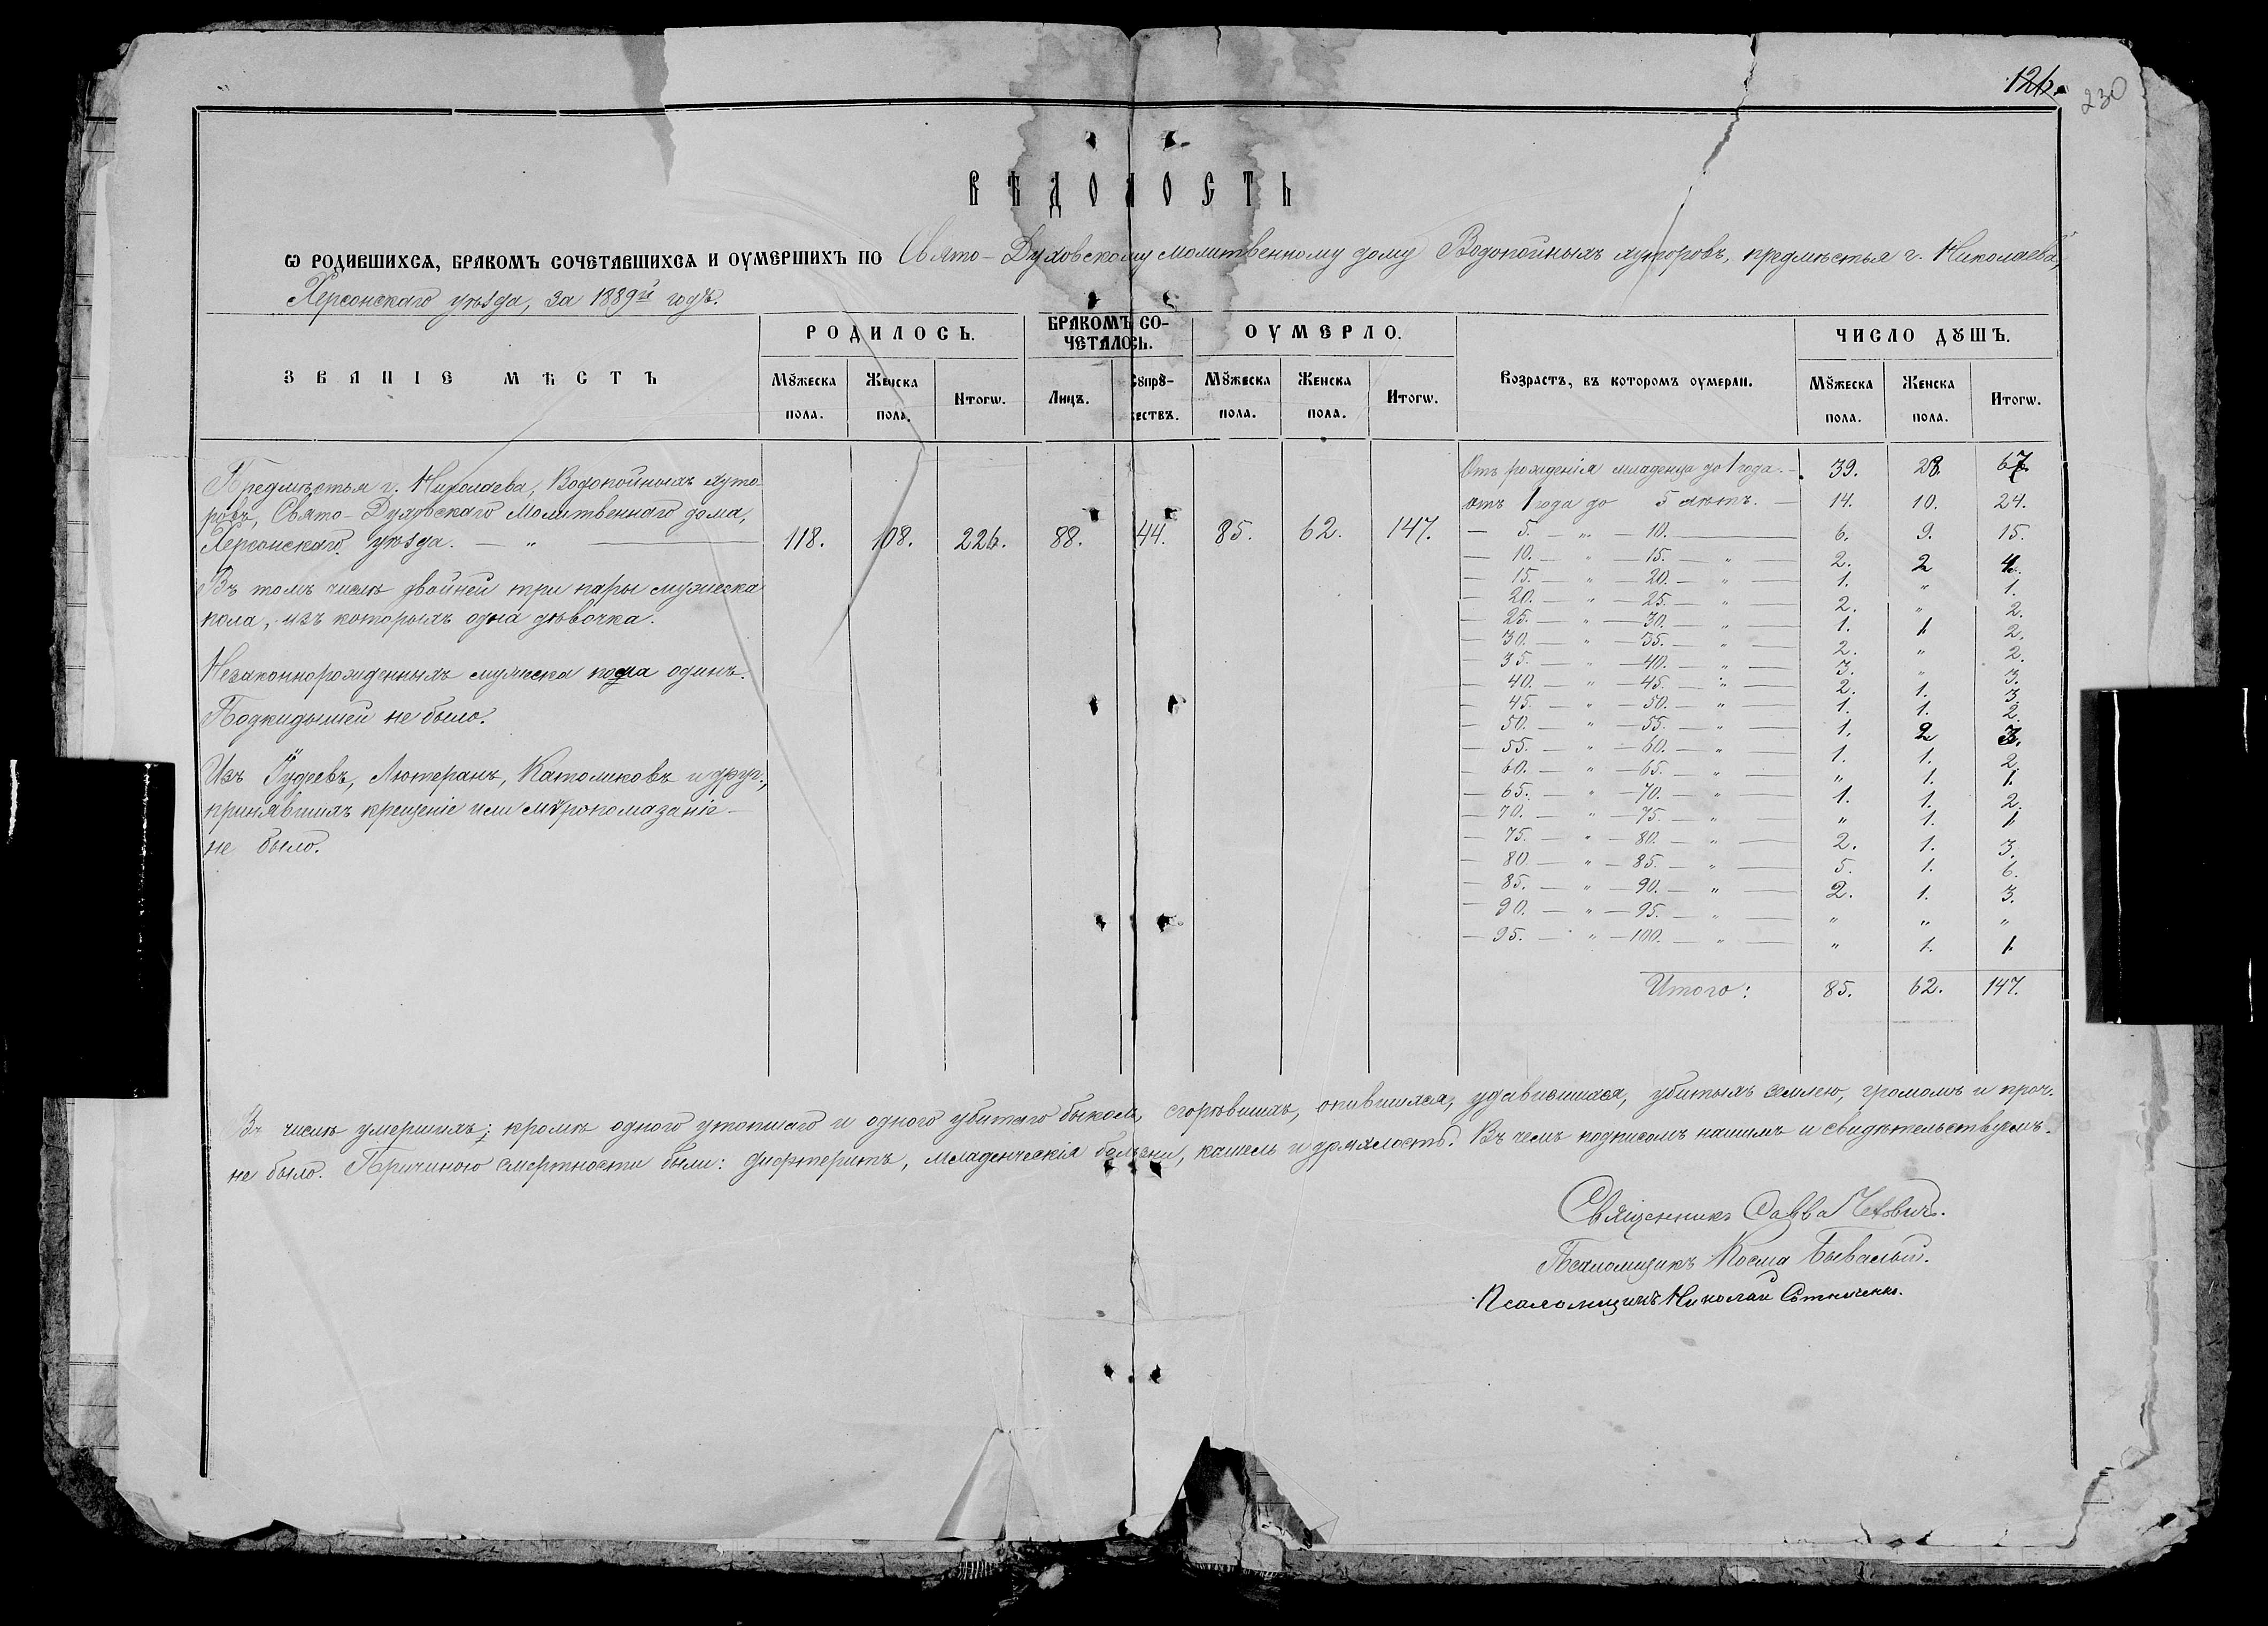 126. 230
ВѢДОМОСТЬ
Ѡ РОДИВШИХСѦ, БРАКОМЪ СОЧЕТАВШИХСѦ И ОУМЕРШИХЪ ПО Свято-Духовскому молитвенному дому Водопойныхъ хуторовъ, предмѣстья г. Николаева,
Херсонскаго уѣзда, за 1889й годъ.
ЗВАНІЕ МѢСТЪ РОДИЛОСЬ. БРАКОМЪ СОЧЕТАЛОСЬ. ОУМЕРЛО. Возрастъ, въ которомъ оумерли. ЧИСЛО ДꙊШЪ.
Мꙋжеска пола. Женска пола. Итогѡ. Лицъ. Мꙋжеска пола. Женска пола. Итогѡ. Мꙋжеска пола. Женска пола. Итогѡ.
Предмѣстья г. Николаева, Водопойныхъ хуто-
ровъ, Свято-Духовскаго Молитвеннаго дома,
Херсонскаго уѣзда. — „ — 118. 108. 226. 88. 44. 85. 62. 147.
Въ томъ числѣ двойней три пары мужеска
пола, изъ которыхъ одна дѣвочка.
Незаконнорожденныхъ мужеска пола одинъ.
Подкидышей не было.
Изъ Іудеевъ, Лютеранъ, Католиковъ и друг.,
принявшихъ крещеніе или мѵропомазаніе —
не было.
Отъ рожденія младенца до 1 года. — 39. 28. 67.
отъ 1 года до 5 лѣтъ. — 14. 10. 24.
— 5. — „ — 10. — 6. 9. 15.
— 10. — „ — 15. — „ — 2. 2 4.
— 15. — „ — 20. — „ — 1. „ 1.
— 20. — „ — 25. — „ — 2. „ 2.
— 25. — „ — 30. — „ — 1. 1 2.
— 30. — „ — 35. — „ — 2. „ 2.
— 35. — „ — 40. — „ — 3. „ 3.
— 40. — „ — 45. — „ — 2. 1. 3.
— 45. — „ — 50. — „ — 1. 1. 2.
— 50. — „ — 55. — „ — 1. 2 3.
— 55. — „ — 60. — „ — 1. 1. 2.
— 60. — „ — 65. — „ — „ 1. 1.
— 65. — „ — 70. — „ — 1. 1. 2.
— 70. — „ — 75. — „ — „ 1. 1
— 75. — „ — 80. — „ — 2. 1. 3.
— 80. — „ — 85. — „ — 5. 1. 6.
— 85. — „ — 90. — „ — 2. 1. 3.
— 90. — „ — 95. — „ — „ „ „
— 95. — „ — 100. — „ — „ 1. 1
Итого: 85. 62. 147.
Въ числѣ умершихъ; кромѣ одного утопшаго и одного убитаго быкомъ, сгорѣвшихъ, опившихся, удавившихся, убитыхъ землею, громомъ и проч.
не было. Причиною смертности были: дифтеритъ, младенческія болѣзни, кашель и дряхлость. Въ чемъ подписомъ нашимъ и свидѣтельствуемъ.
Священникъ Савва
Псаломщикъ Косма Бывалый.
Псаломщикъ Николай